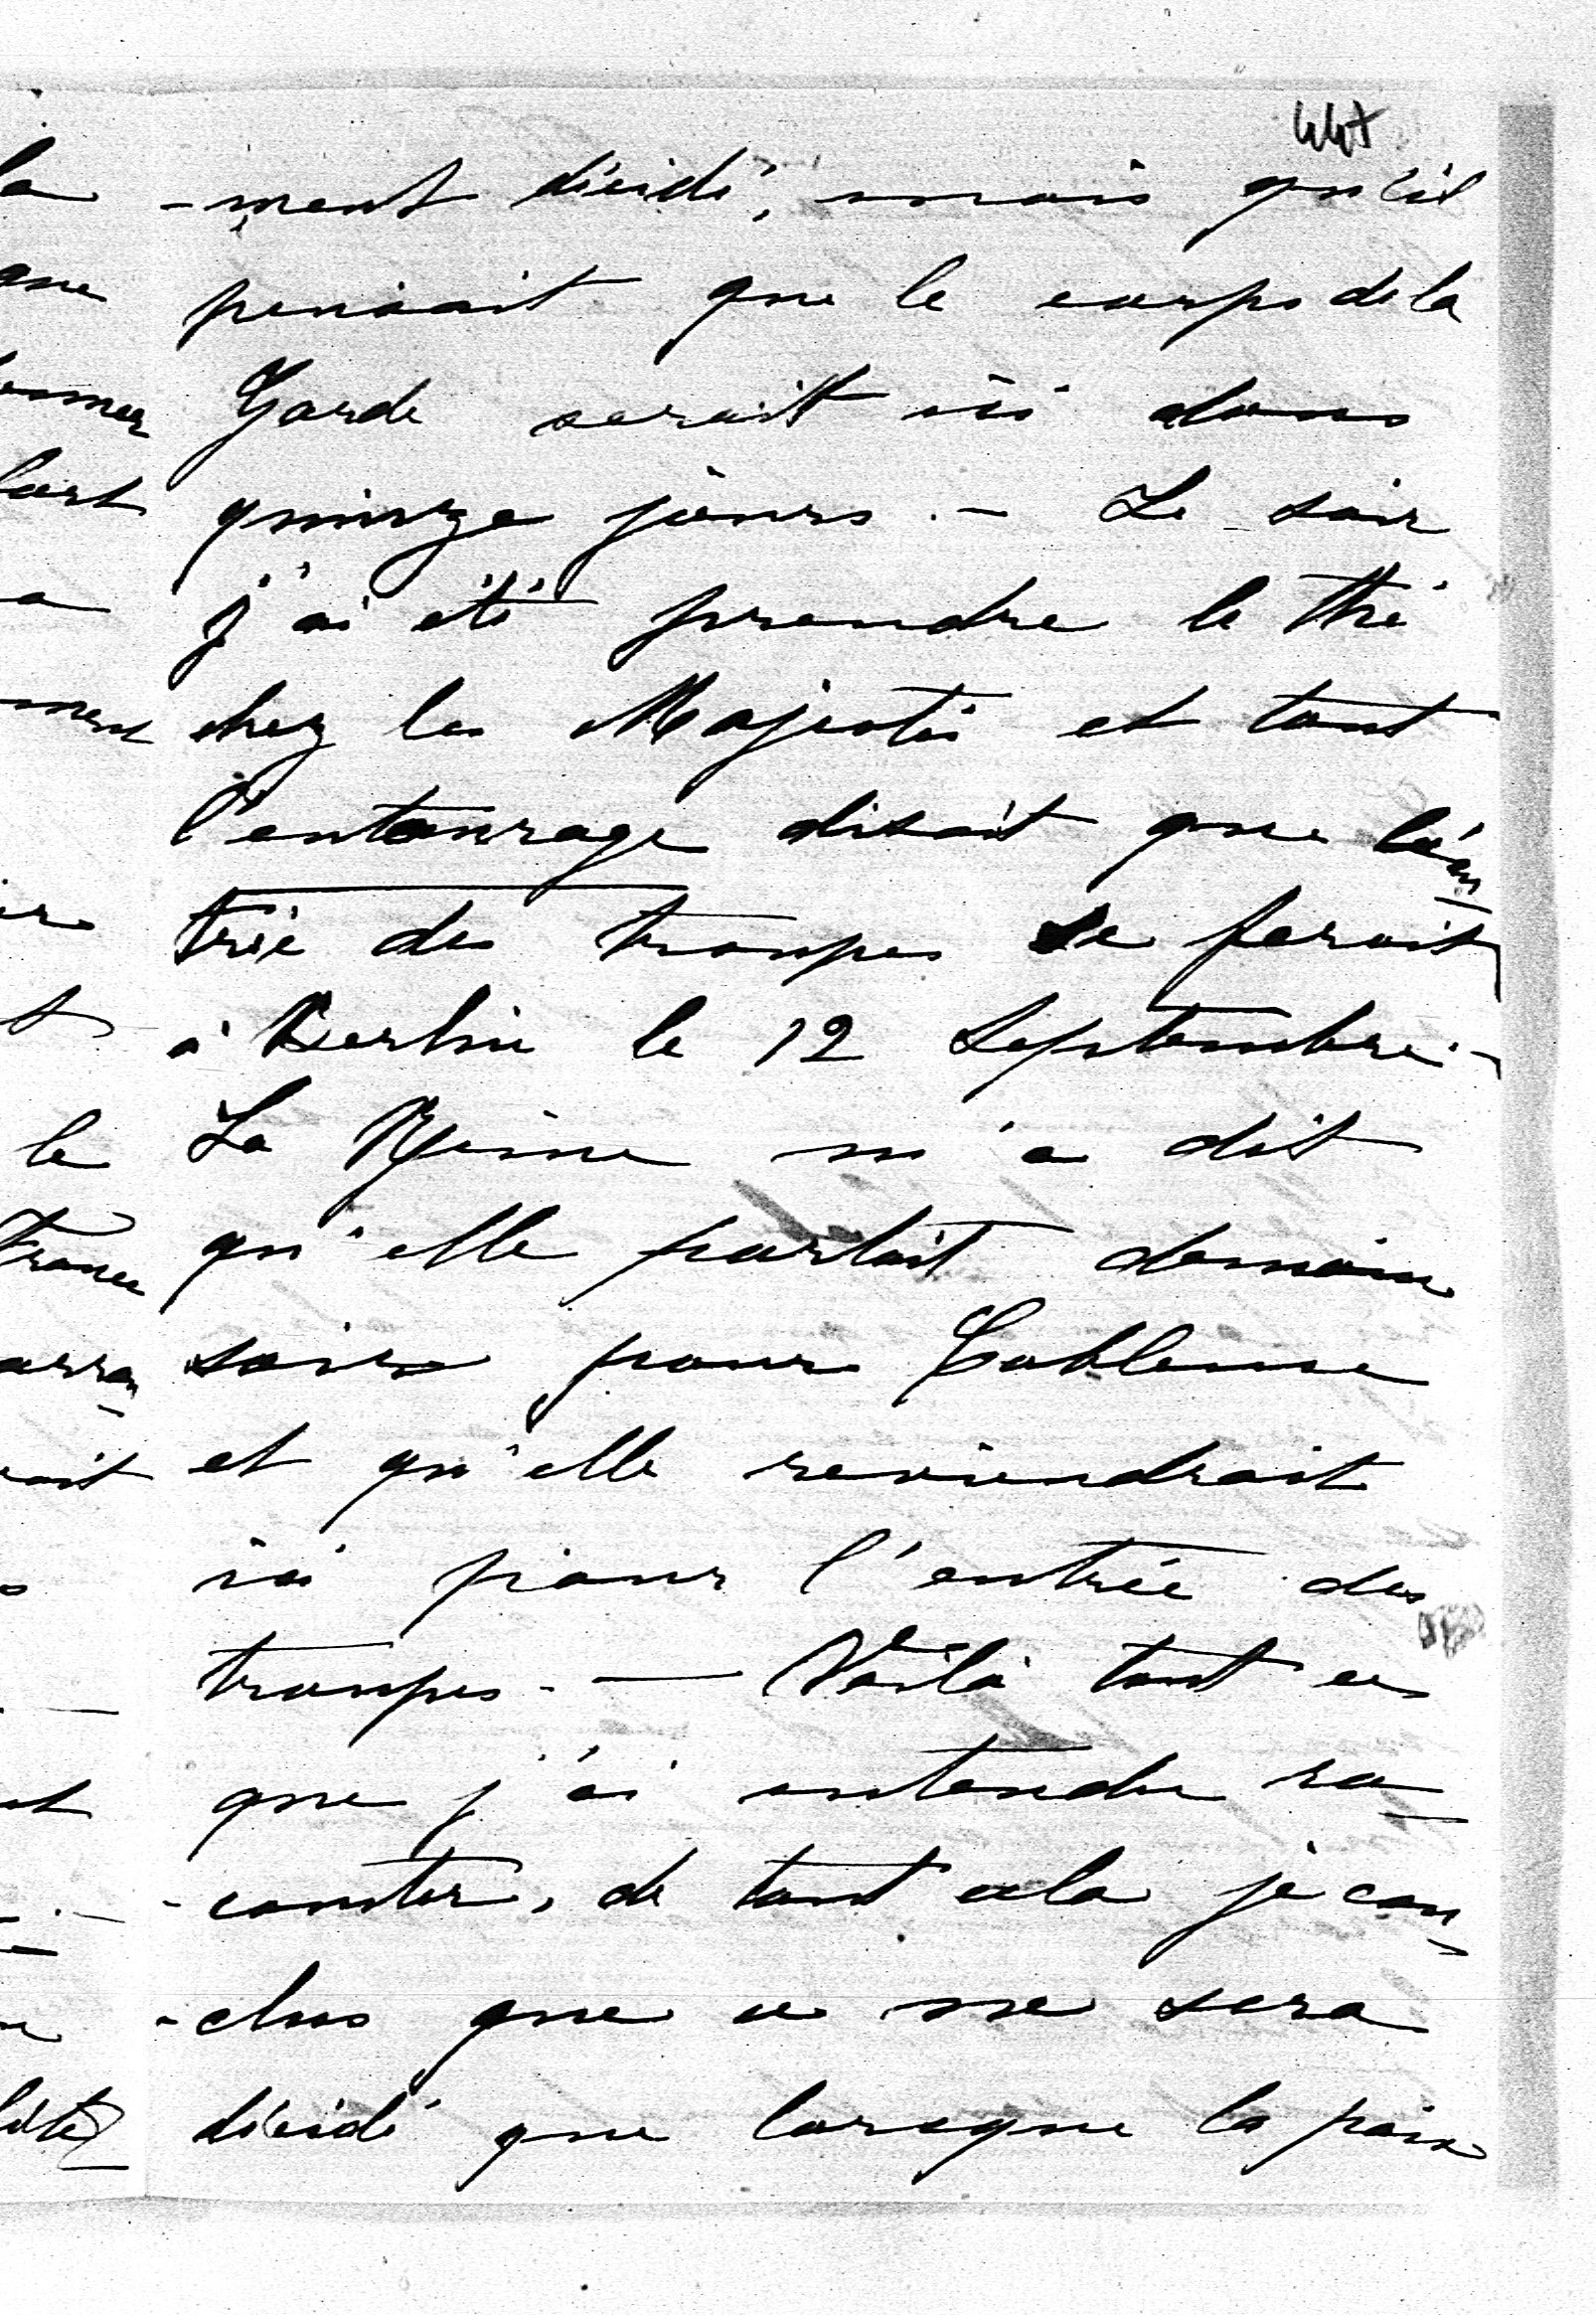 447
-ment décidé, mais qu'il
pensait que le corps de la
Garde serait ici dans
quinze jours. - Le soir
j'ai été prendre le thé
chez les Majestés et tout
l'entourage disait que l'en-
trée des troupes se ferait
à Berlin le 12 Septembre. -
La Reine m'a dit
qu'elle partait demain
soir pour Coblence
et qu'elle reviendrait
ici pour l'entrée des
troupes. - Voilà tout ce
que j'ai entendu ra-
-conter, de tout cela je con-
-clus que ce ne sera
décidé que lorsque la paix